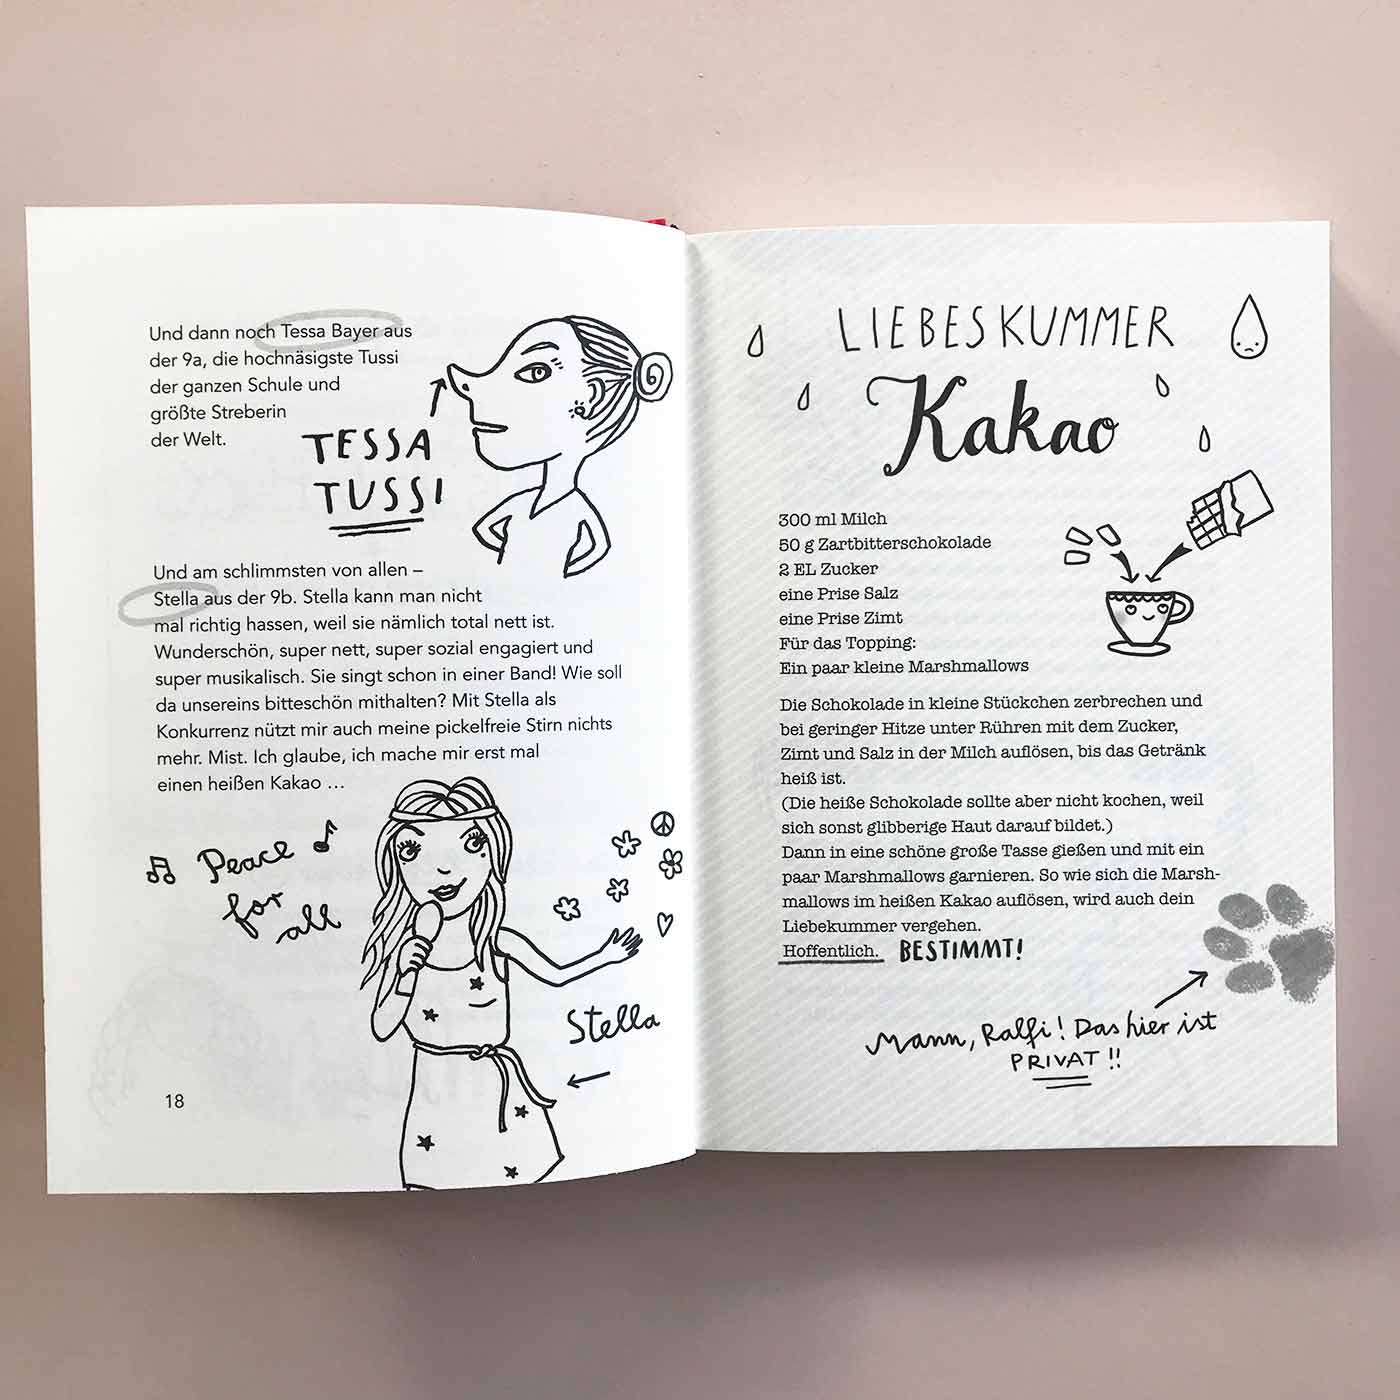 Und dann noch Tessa Bayer aus
der 9a, die hochnäsigste Tussi
der ganzen Schule und
größte Streberin
der Welt.
TESSA
TUSSI
Und am schlimmsten von allen –
Stella aus der 9b. Stella kann man nicht
mal richtig hassen, weil sie nämlich total nett ist.
Wunderschön, super nett, super sozial engagiert und
super musikalisch. Sie singt schon in einer Band! Wie soll
da unsereins bitteschön mithalten? Mit Stella als
Konkurrenz nützt mir auch meine pickelfreie Stirn nichts
mehr. Mist. Ich glaube, ich mache mir erst mal
einen heißen Kakao …
Peace
for
all
Stella
18
LIEBESKUMMER
Kakao
300 ml Milch
50 g Zartbitterschokolade
2 EL Zucker
eine Prise Salz
eine Prise Zimt
Für das Topping:
Ein paar kleine Marshmallows
Die Schokolade in kleine Stückchen zerbrechen und
bei geringer Hitze unter Rühren mit dem Zucker,
Zimt und Salz in der Milch auflösen, bis das Getränk
heiß ist.
(Die heiße Schokolade sollte aber nicht kochen, weil
sich sonst glibberige Haut darauf bildet.)
Dann in eine schöne große Tasse gießen und mit ein
paar Marshmallows garnieren. So wie sich die Marsh-
mallows im heißen Kakao auflösen, wird auch dein
Liebekummer vergehen.
Hoffentlich. BESTIMMT!
Mann, Ralfi! Das hier ist
PRIVAT!!